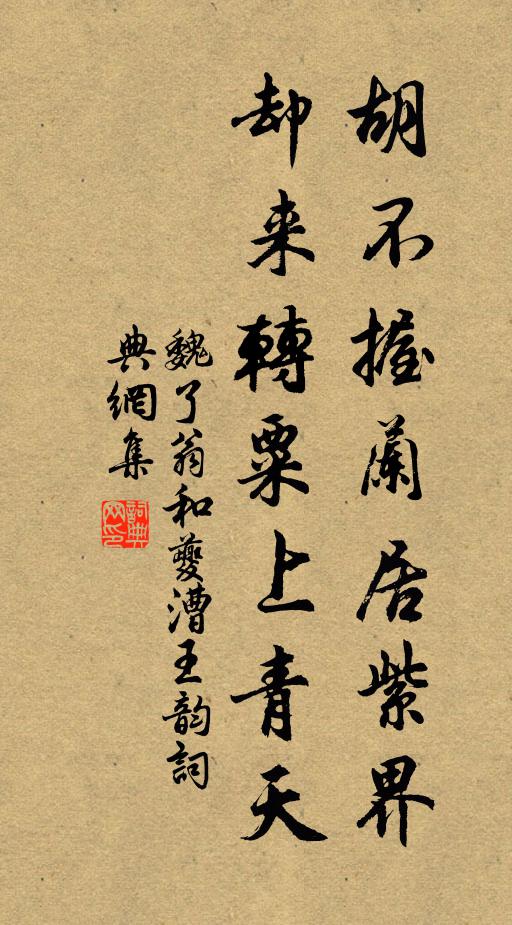 胡不握蘭居紫界
却来轉粟上青天
魏了翁和夔漕王韵詞
典網集
詞典网印